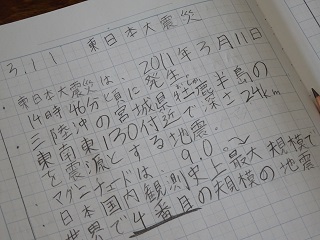 3.11 東日本大震災
・東日本大震災は、2011年3月11日
14時46分頃に発生。
三陸沖の宮城県牡鹿半島の
東南東130付近で、深さ24km
を震源とする地震。
・マグニチュードは9.0。
・日本国内観測史上最大規模で
世界で4番目の規模の地震